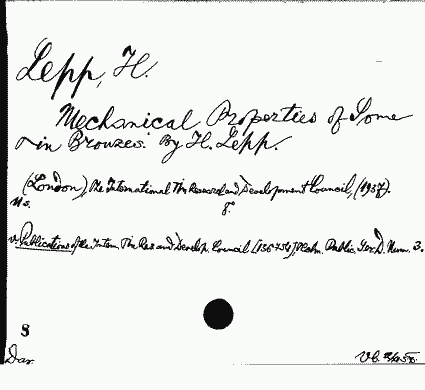 Lepp, H.
Mechanical Properties of Some
Tin Bronzes. By H. Lepp.
(London), The International Tin Research and Development Council, (1937).
8°.
v. Publications of the Intern. Tin Res. and Develop. Council
Public. Ser. D. Num. 3.
8